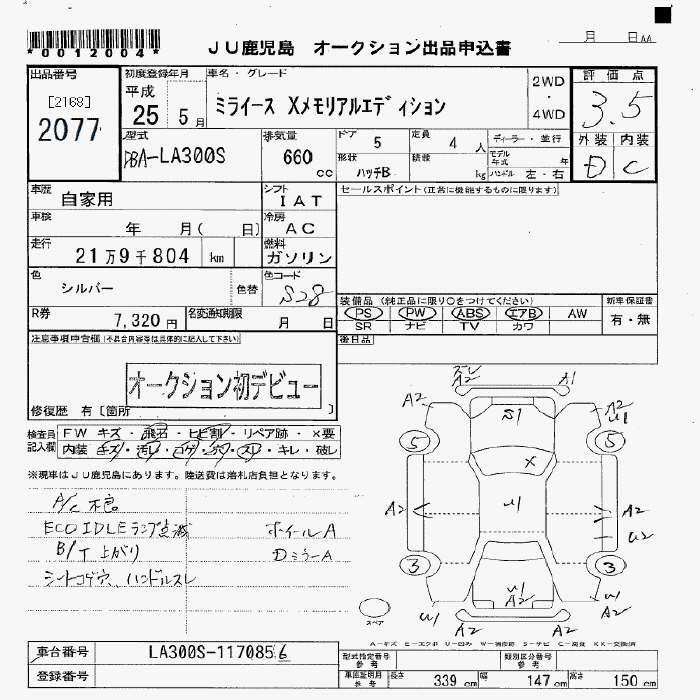 *0012004*
JU鹿児島 オークション出品申込書
月 日
出品番号 初度登録年月 車名・グレード 評価点
[2168] 平成 ミライース Xメモリアルエディション 2WD・4WD 3.5
2077 25 5月
型式 排気量 ドア 5 定員 4人 ディーラー・並行 外装 内装
DBA-LA300S 660cc 形状 ハッチB 積載 kg モデル年式 年 ハンドル 左・右 D C
車歴 自家用 シフト IAT セールスポイント(正常に機能するものに限ります)
車検 年 月( 日) 冷房 AC
走行 21万9千804 km 燃料 ガソリン
色 シルバー 色替 色コード S28
装備品(純正品に限り○をつけてください) 新車保証書
R券 7,320円 名変通知期限 月 日
PS PW ABS エアB AW 有・無
SR ナビ TV カワ
注意事項申告欄(不具合内容等は具体的に記入して下さい) 後日品
オークション初デビュー
修復歴 有〔箇所 〕
検査員記入欄 FW キズ・飛石・ヒビ割・リペア跡・×要
内装・キズ・汚レ・コゲ・穴・スレ・キレ・破レ
※現車はJU鹿児島にあります。陸送費は落札店負担となります。
A/C 不良
ECO IDLEランプ点滅 ホイールA
B/T 上がり DミラーA
シートコゲ穴、ハンドルスレ
A2 A1
A2 S1 A2
U1
5 5
X
A2 U1 A2
U2
3 3
U1
A2
W1 U1
A2 A2
スペア
A-キズ E-エクボ U-凹み W-補修跡 S-サビ C-腐食 XX-交換済
車台番号 LA300S-1170856
型式指定番号 参考 類別区分番号 参考
登録番号
車庫証明用 参考 長さ 339cm 幅 147cm 高さ 150cm